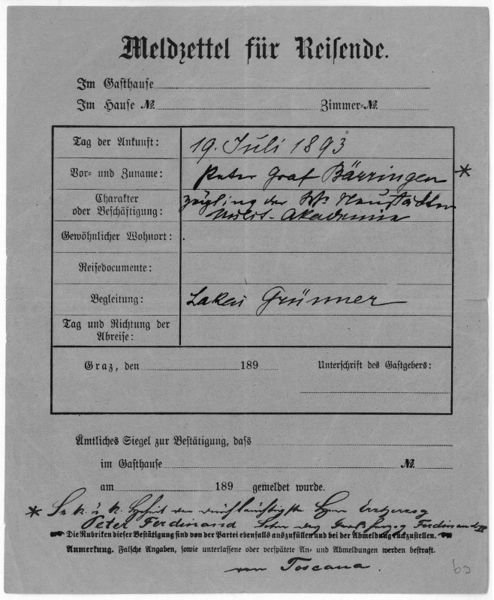 Meldzettel für Reisende.
Im Gasthause
Im Hause № Zimmer-№
Tag der Ankunft: 19. Juli 1893
Vor- und Zuname: Peter Graf Bärringen *
Charakter oder Beschäftigung: Zögling der kk Neustädter
Milit.-Akademie
Gewöhnlicher Wohnort:
Reisedocumente:
Begleitung: Lakai Grünner
Tag und Richtung der Abreise:
Graz, den 189 Unterschrift des Gastgebers:
Ämtliches Siegel zur Bestätigung, dass
im Gasthause №
am 189 gemeldet wurde.
* Se k. u. k. Hoheit der durchlauchtigste Herr Erzherzog
Peter Ferdinand Sohn des Großherzog Ferdinand IV
Die Rubriken dieser Bestätigung sind von der Partei ebenfalls auszufüllen und bei der Abmeldung rückzustellen.
Anmerkung. Falsche Angaben, sowie unterlassene oder verspätete An- und Abmeldungen werden bestraft.
von Toscana.